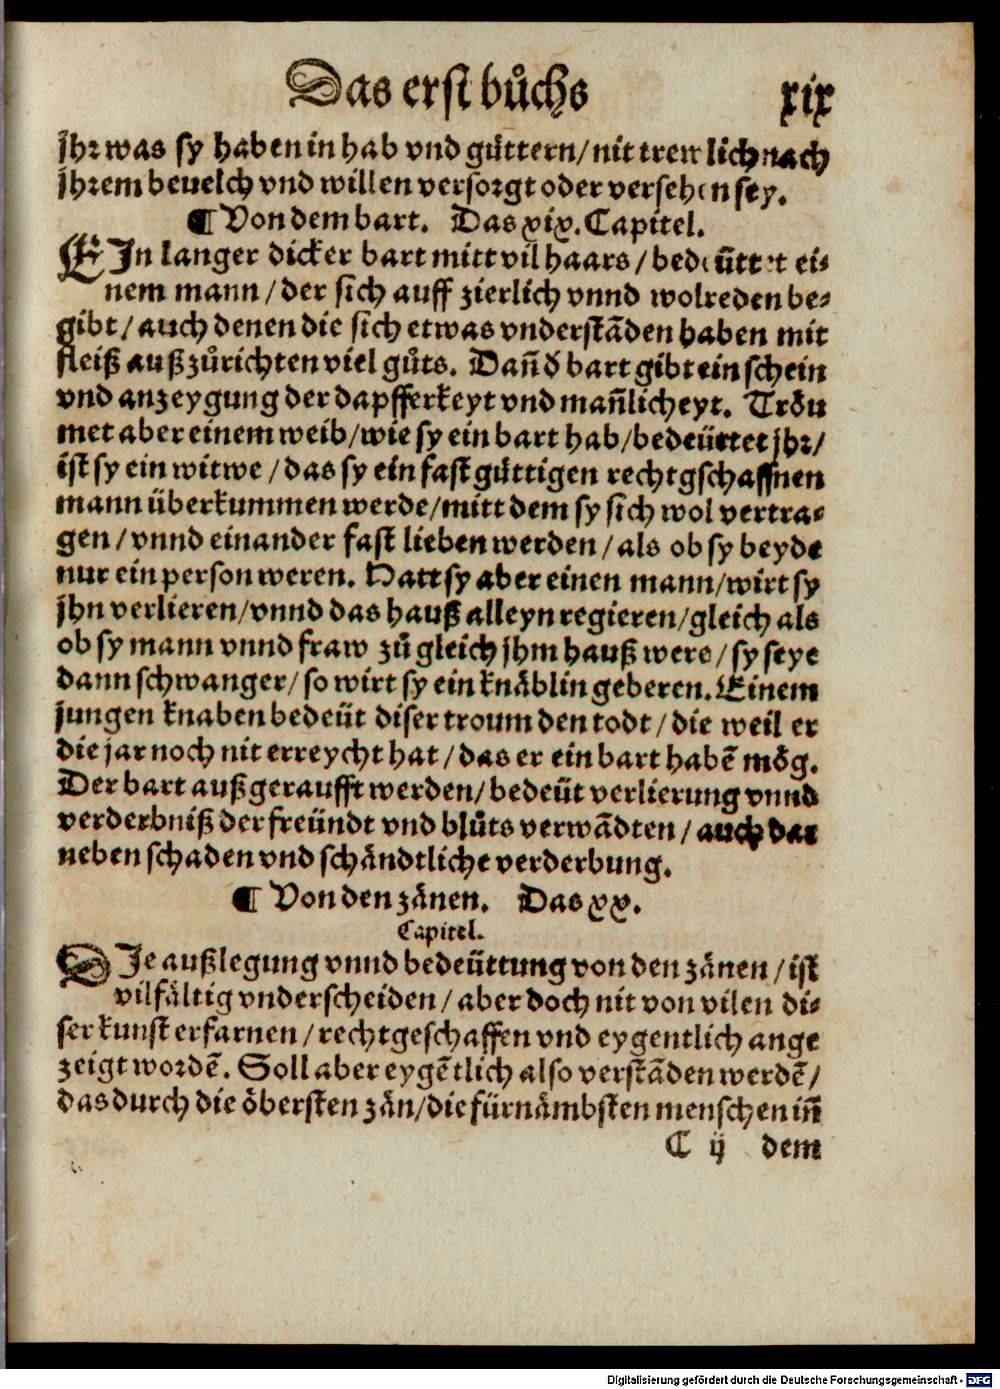 Das erst bůchs xix
jhr was sy haben in hab vnd gůttern/ nit trewlich nach
jhrem beuelch vnd willen versorgt oder versehen sey.
¶ Von dem bart. Das xix. Capitel.
EIn langer dicker bart mitt vil haars/ bedeüttet ei⸗
nem mann/ der sich auff zierlich vnnd wolreden be⸗
gibt/ auch denen die sich etwas vnderstāden haben mit
fleiß außzůrichten viel gůts. Dañ d̄ bart gibt ein schein
vnd anzeygung der dapfferkeyt vnd mañlicheyt. Trȫu
met aber einem weib/ wie sy ein bart hab/ bedeüttet jhr/
ist sy ein witwe/ das sy ein fast gůttigen rechtgschaffnen
mann überkummen werde/ mitt dem sy sich wol vertra⸗
gen/ vnnd einander fast lieben werden/ als ob sy beyde
nur ein person weren. Hatt sy aber einen mann/ wirt sy
jhn verlieren/ vnnd das hauß alleyn regieren/ gleich als
ob sy mann vnnd fraw zů gleich jhm hauß were/ sy seye
dann schwanger/ so wirt sy ein knäblin geberen. Einem
jungen knaben bedeüt diser troum den todt/ die weil er
die jar noch nit erreycht hat/ das er ein bart habē mög.
Der bart außgeraufft werden/ bedeüt verlierung vnnd
verderbniß der freündt vnd blůts verwādten/ auch dar
neben schaden vnd schändtliche verderbung.
¶ Von den zänen. Das xx.
Capitel.
DIe außlegung vnnd bedeüttung von den zänen/ ist
vilfältig vnderscheiden/ aber doch nit von vilen di⸗
ser kunst erfarnen/ rechtgeschaffen vnd eygentlich ange
zeigt wordē. Soll aber eygētlich also verstāden werdē/
das durch die öbersten zän/ die fürnämbsten menschen iñ
C ij dem
Digitalisierung gefördert durch die Deutsche Forschungsgemeinschaft - DFG